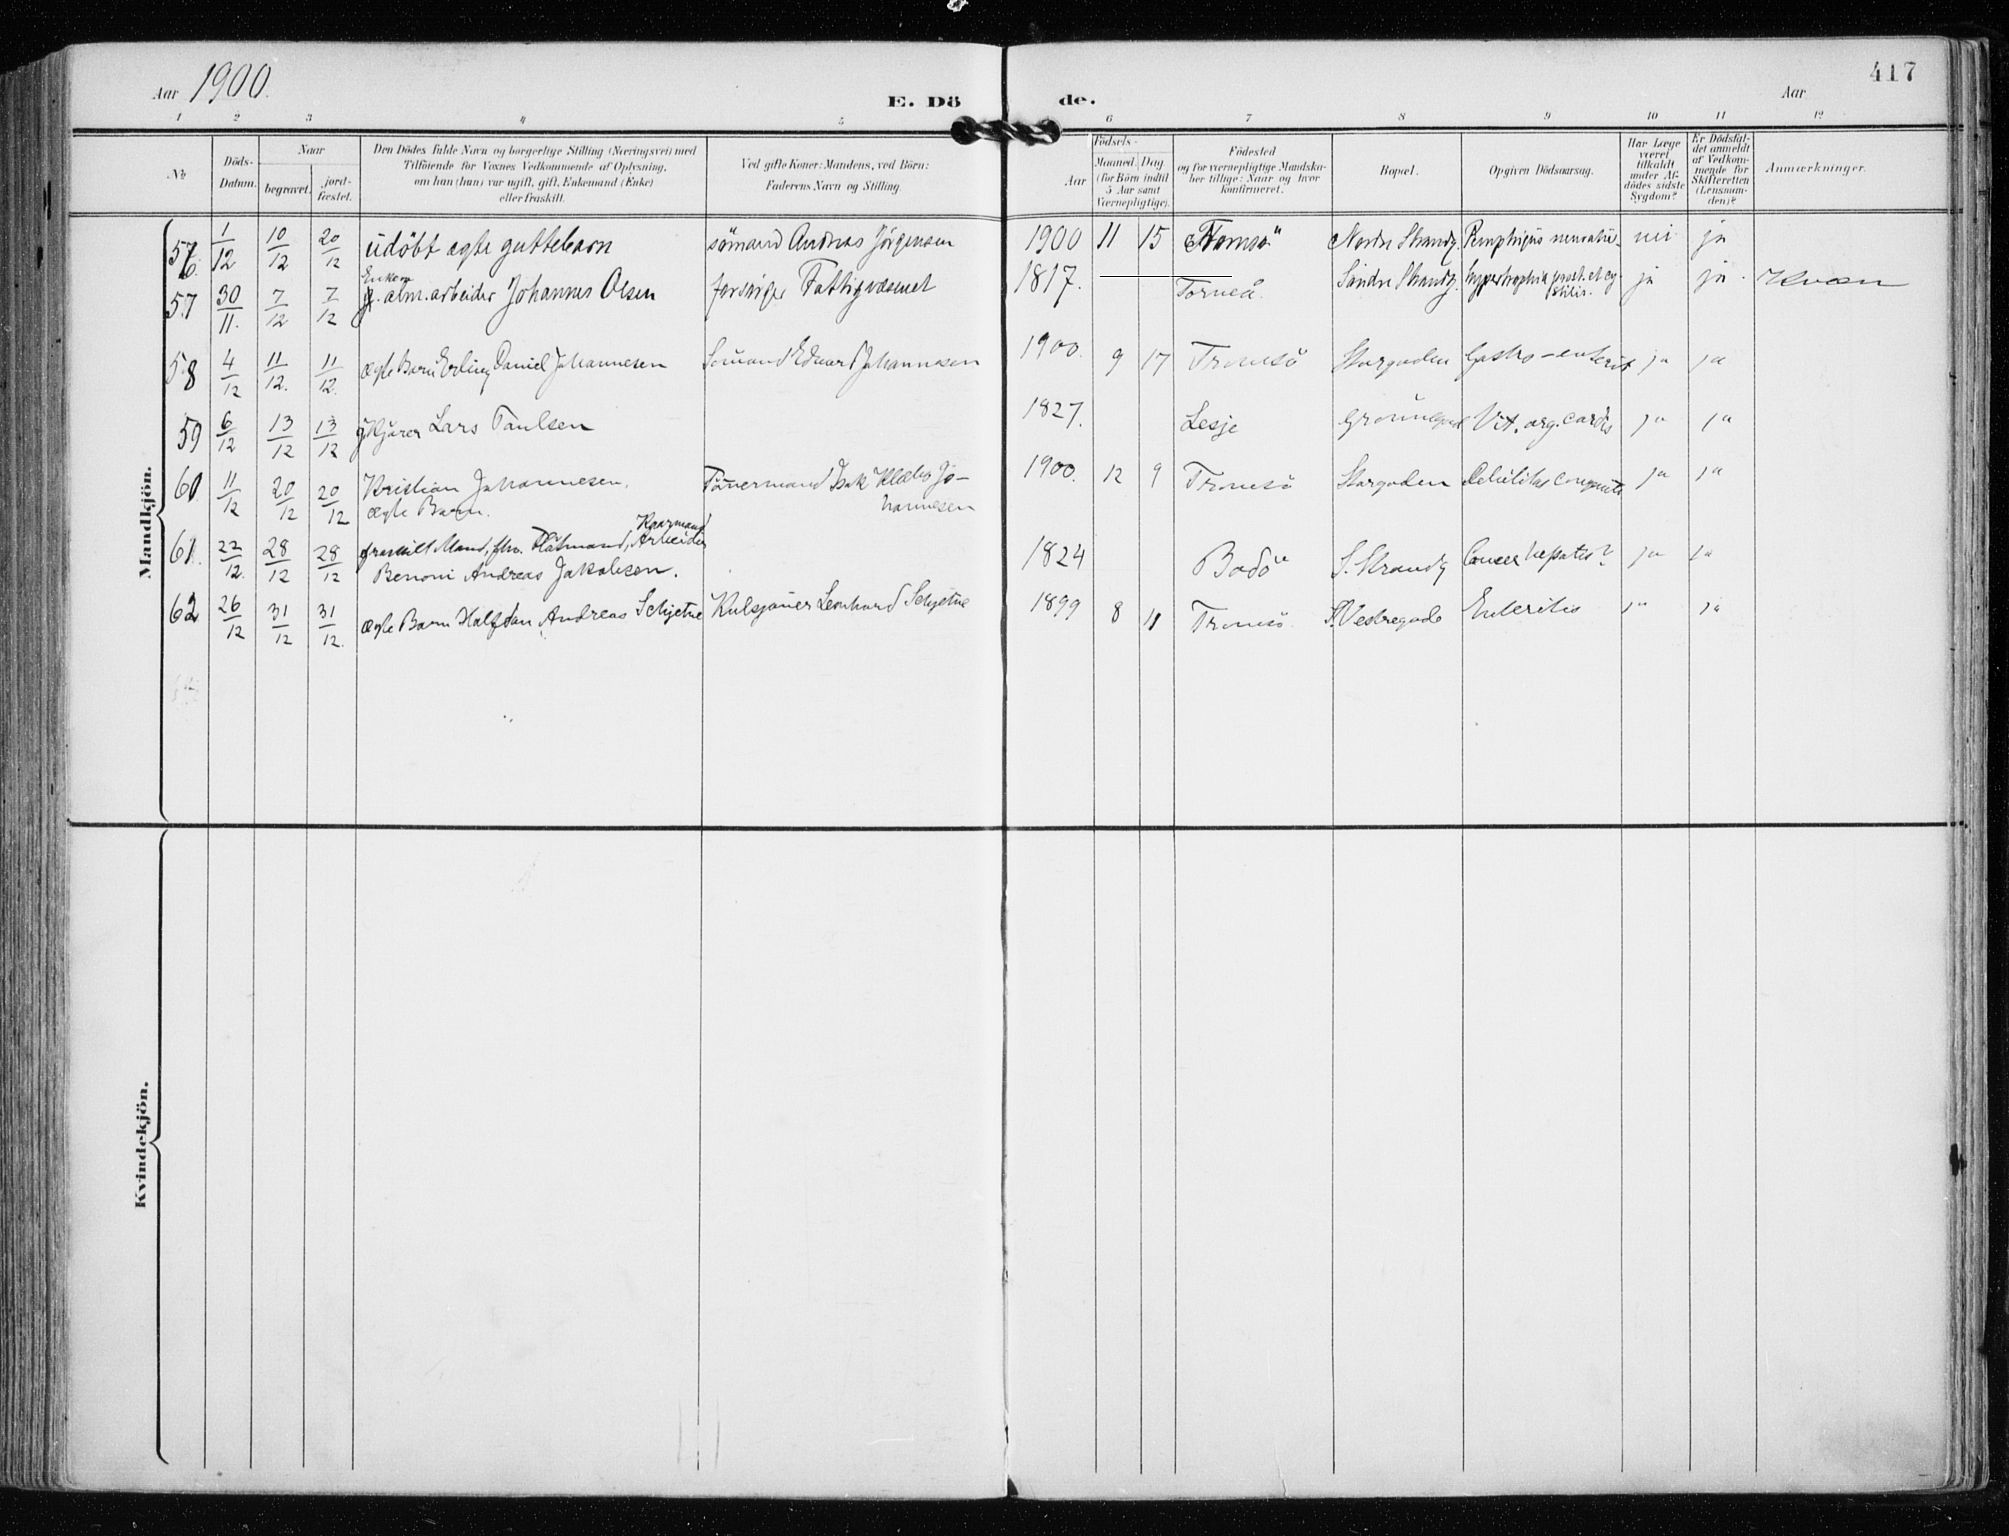 Aar 1900.
E. Dö
de.
Aar
417
1 2 3 4 5 6 7 8 9 10 11 12
№
Döds-
Datum.
Naar
begravet.
jord-
fæstet.
Den Dödes fulde Navn og borgerlige Stilling (Næringsvei) med
Tilföiende for Voxnes Vedkommende af Oplysning,
om han (hun) var ugift, gift, Enkemand (Enke)
eller fraskilt.
Ved gifte Koner: Mandens, ved Börn:
Faderens Navn og Stilling.
Födsels-
Aar
Maaned. Dag
(for Börn indtil
5 Aar samt
Værnepligtige).
Födested
og for værnepligtige Mandska-
ber tillige: Naar og hvor
konfirmeret.
Bopæl.
Opgiven Dödsaarsag.
Har Læge
været
tilkaldt
under Af-
dödes sidste
Sygdom?
Er Dödsfal-
det anmeldt
af Vedkom-
mende for
Skifteretten
(Lensman-
den)?
Anmærkninger.
Mandkjön.
56. 1/12 10/12 20/12 udöbt ægte guttebarn sömand Andreas Jörgensen 1900 11 15 Tromsö Nordre Strandg. Pemphigus neonator. nei ja
Enkem.
57 30/11. 7/12 7/12 alm. arbeider Johannes Olsen forsörges Fattigvæsenet 1817. Torneå. Söndre Strandg. hypertrophia prost. et cy-
stitis. ja ja. Kvæn
58 4/12 11/12. 11/12. ægte Barn Erling Daniel Johannesen Sömand Edvard Johannesen 1900. 9 17 Tromsö Storgaden Gastro-enterit ja ja
59 6/12 13/12 13/12 Lars Paulsen 1827. Lesje Grönnegad Vit. org. cordis ja ja
60. 11/12 20/12 20/12 Kristian Johannesen. Isak Jo-
ægte Barn. hannesen 1900. 12 9 Tromsö Storgaden Debilitas congenita ja ja
61. 22/12. 28/12 28/12 fraskilt Mand, fhv. Arbeider
Benoni Andreas Jakobsen. 1824 Bodö S. Strandg Cancer hepatis? ja ja
62 26/12 31/12 31/12. ægte Barn Halfdan Andreas Schjetne Kulsjouer Leonhard Schjetne 1899 8 11 Tromsö. S. Vestregade Enteritis ja ja
Kvindekjön.